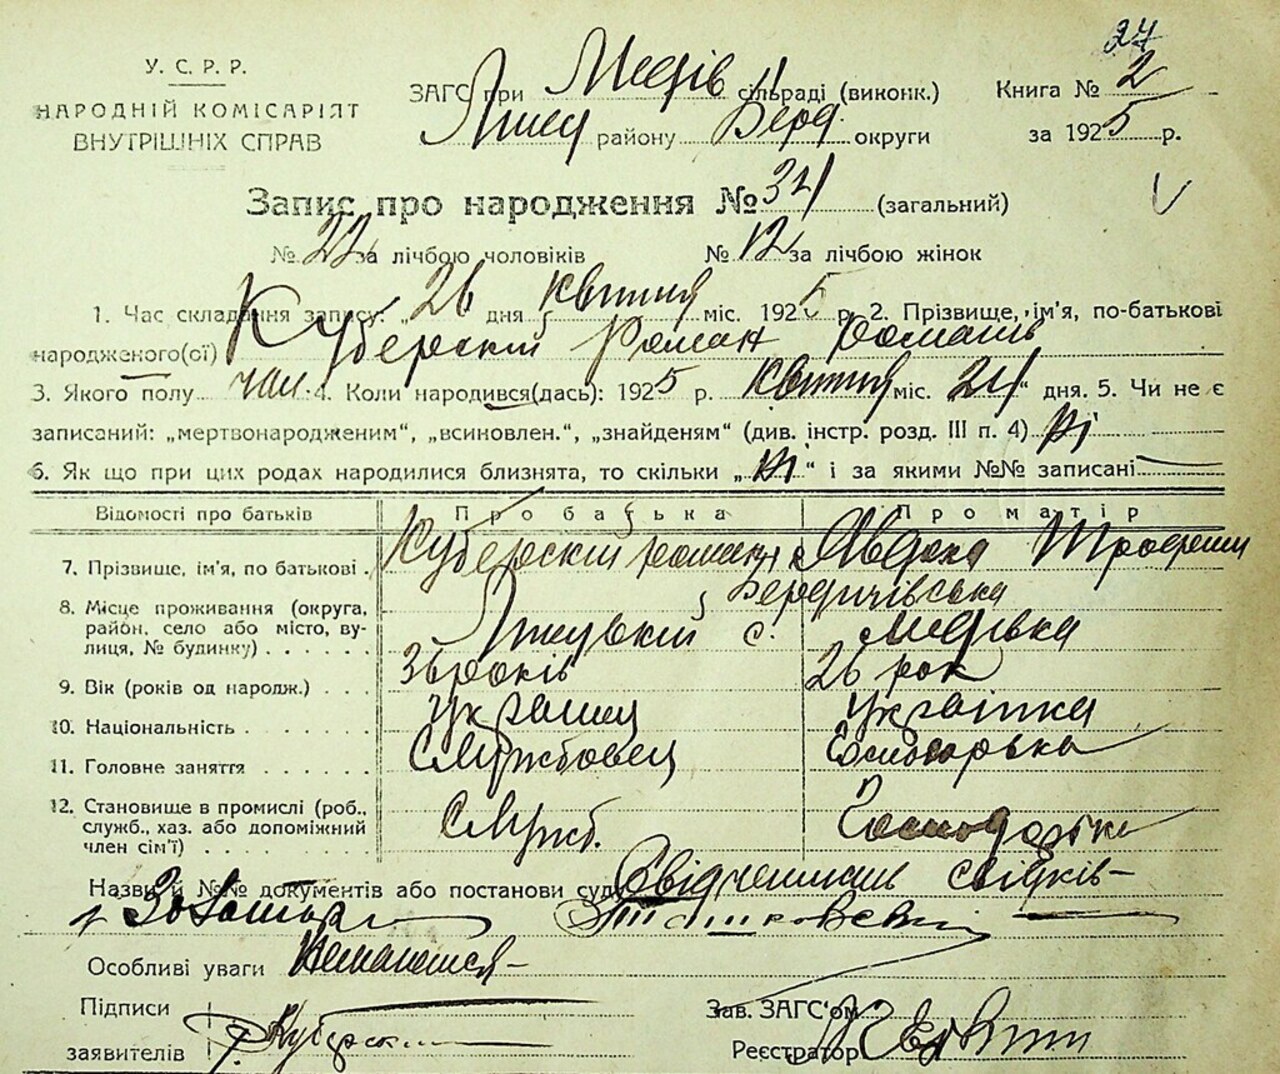 27
У. С. Р. Р.
НАРОДНІЙ КОМІСАРІЯТ
ВНУТРІШНІХ СПРАВ
ЗАГС при Медів сільраді (виконк.)
Книга № 2
району Берд. округи
за 1925 р.
Запис про народження № 34 (загальний)
№ 22 за лічбою чоловіків № 12 за лічбою жінок
1. Час складання запису: „26 дня квітня міс. 1925 р. 2. Прізвище, ім'я, по-батькові
народженого(ої) Куберский Роман Романів
3. Якого полу чол. 4. Коли народився(дась): 1925 р. квітня міс. 24" дня. 5. Чи не є
записаний: „мертвонародженим", „всиновлен.", „знайденям" (див. інстр. розд. III п. 4) ні
6. Як що при цих родах народилися близнята, то скільки „ні" і за якими №№ записані
Відомості про батьків Про батька Про матір
7. Прізвище, ім'я, по батькові Куберский Роман Явдоха
8. Місце проживання (округа, Бердичівська
район, село або місто, ву- с. Медівка
лиця, № будинку)
9. Вік (років од народж.) 36 років 26 рок
10. Національність українец українка
11. Головне заняття Службовец Господарька
12. Становище в промислі (роб., Служб. Господарька
служб., хаз. або допоміжний
член сім'ї)
Назви й №№ документів або постанови суду Свідчення свідків-
Особливі уваги
Підписи
заявителів Куберский
Зав. ЗАГС'ом
Реєстратор